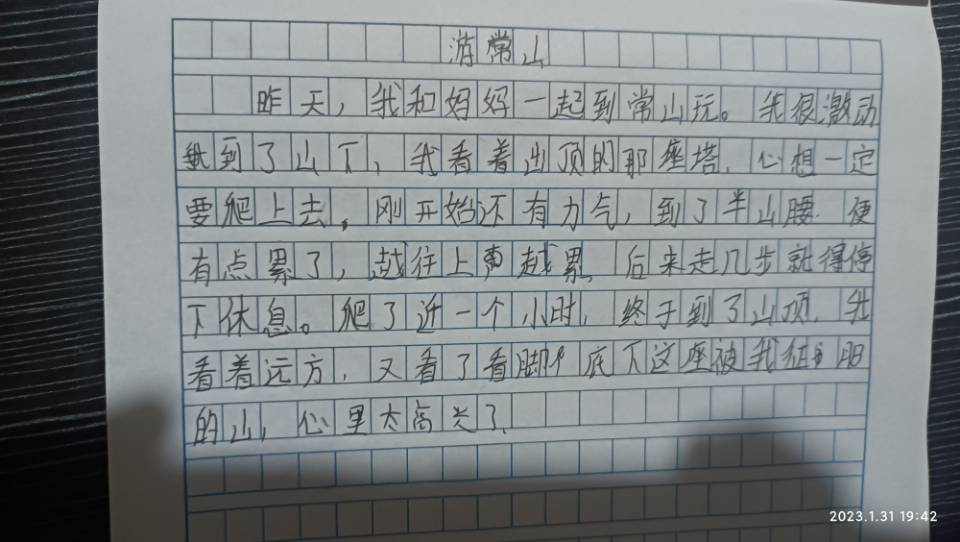 游常山
昨天，我和妈妈一起到常山玩。我很激动
到了山下，我看着山顶的那座塔，心想一定
要爬上去。刚开始还有力气，到了半山腰 便
有点累了，越往上 越累，后来走几步就得停
下休息。爬了近一个小时，终于到了山顶，我
看着远方，又看了看脚 底下这座被我征
的山，心里太高兴了。
2023.1.31 19:42